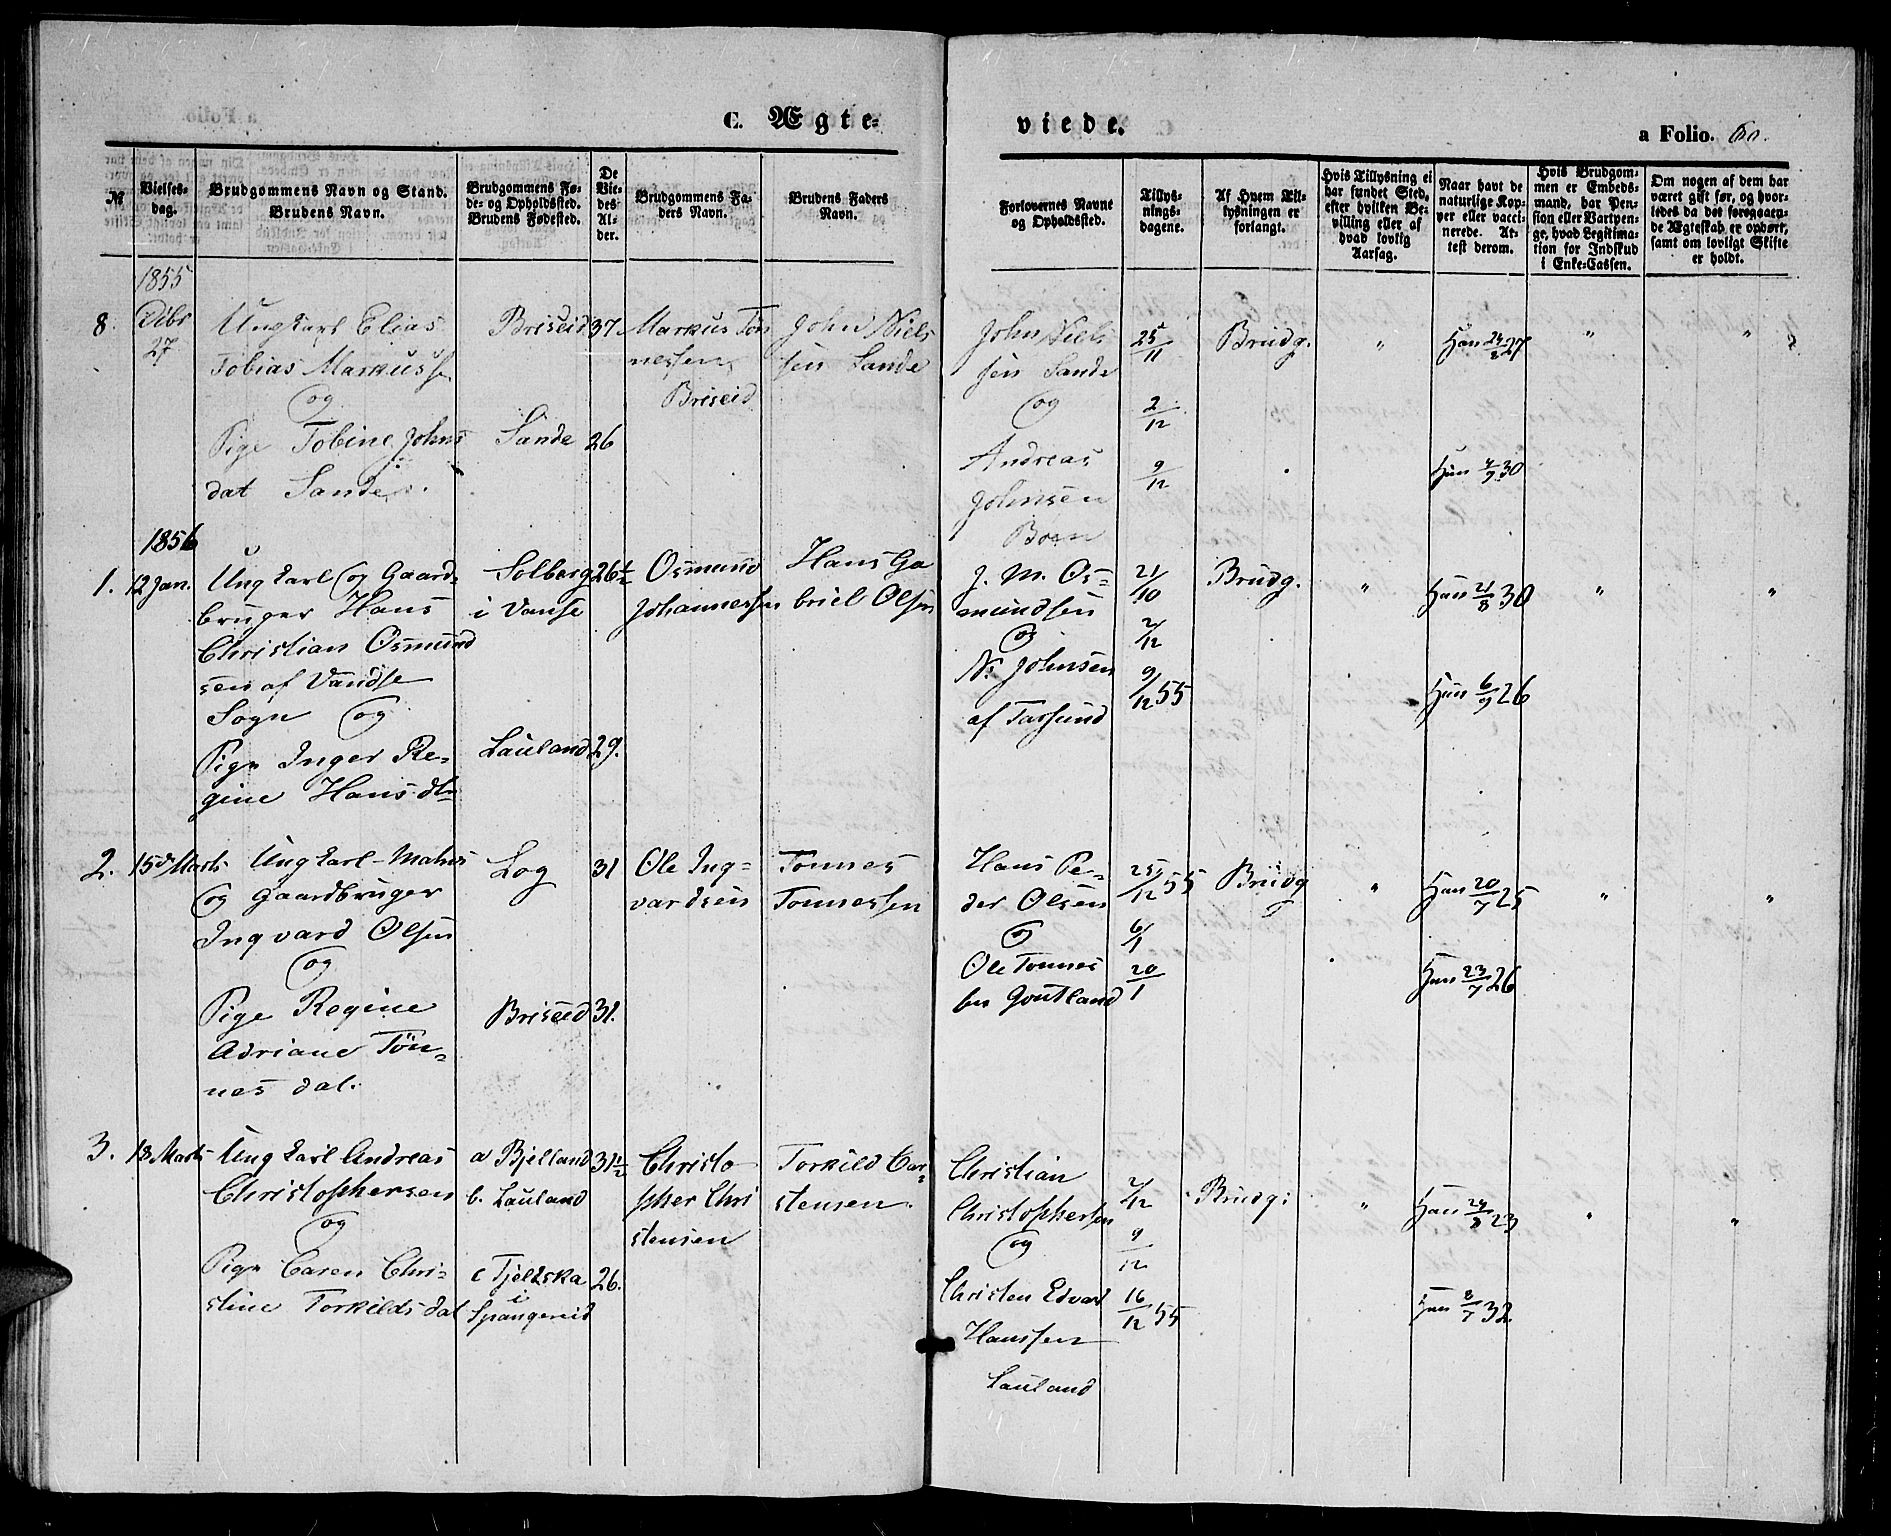 C. Ægte-
viede.
a Folio. 60.
№
Vielses-
dag.
Brudgommens Navn og Stand.
Brudens Navn.
Brudgommens Fø-
de- og Opholdssted.
Brudens Fødested.
De
Vie-
des
Al-
der.
Brudgommens Fa-
ders Navn.
Brudens Faders
Navn.
Forlovernes Navne
og Opholdssted.
Tillys-
nings-
dagene.
Af Hvem Til-
lysningen er
forlangt.
Hvis Tillysning ei
har fundet Sted,
efter hvilken Be-
villing eller af
hvad lovlig
Aarsag.
Naar havt de
naturlige Kop-
per eller vacci-
nerede. At-
test derom.
Hvis Brudgom-
men er Embeds-
mand, har Pen-
sion eller Vartpen-
ge, hvad Legitima-
tion for Indskud
i Enke-Cassen.
Om nogen af dem har
været gift før, og hvor-
ledes da det foregaaen-
de Ægteskab er ophørt,
samt om lovligt Skifte
er holdt.
1855
8.
Dcbr
27
Ungkarl Elias
Tobias Markussen
og
Pige Tobine Johns
dat Sande.
Briseid
Sande
37
26
Markus Tøn
nessen
Briseid
John Niels
sen Sande
John Niels
sen Sande
og
Andreas
Johnsen
Boen
25/11
2/12
9/12
Brudg.
"
Han 24/2 27
Hun 4/7 30
"
"
1856
1.
12 Jan.
Ungkarl og Gaard-
bruger Hans
Christian Osmund
sen af Vandse
Sogn og
Pige Inger Re-
gine Hansdtr
Solberg
i Vanse
Lauland
26½
29.
Osmund
Johannessen
Hans Ga
briel Olsen
J. M. Os-
mundsen
og
N. Johnsen
af Farsund
21/10
2/12
9/12 55
Brudg.
"
Han 21/8 30
Hun 6/9 26
"
"
2.
15d Marts
Ungkarl Matros
og Gaardbruger
Ingvard Olsen
og
Pige Regine
Adriane Tøn-
nesdat.
Log
Briseid
31
31.
Ole Ing-
vardsen
Tonnes
Tonnessen
Hans Pe-
der Olsen
og
Ole Tonnes
sen Goutland
25/12 55
6/1
20/1
Brudg
"
Han 20/7 25
Hun 23/7 26
"
"
3.
18 Marts
Ungkarl Andreas
Christophersen
og
Pige Caren Chri-
stine Torkildsdat
a Bjelland
b. Lauland
c Tjelska
i
Spangereid
31½
26.
Christo-
pher Chri
stensen
Torkild Car-
stensen
Christian
Christophersen
og
Christen Edvard
Hanssen
Lauland
2/12
9/12
16/12 55
Brudg:
"
Han 24/8 23
Hun 8/7 32.
"
"